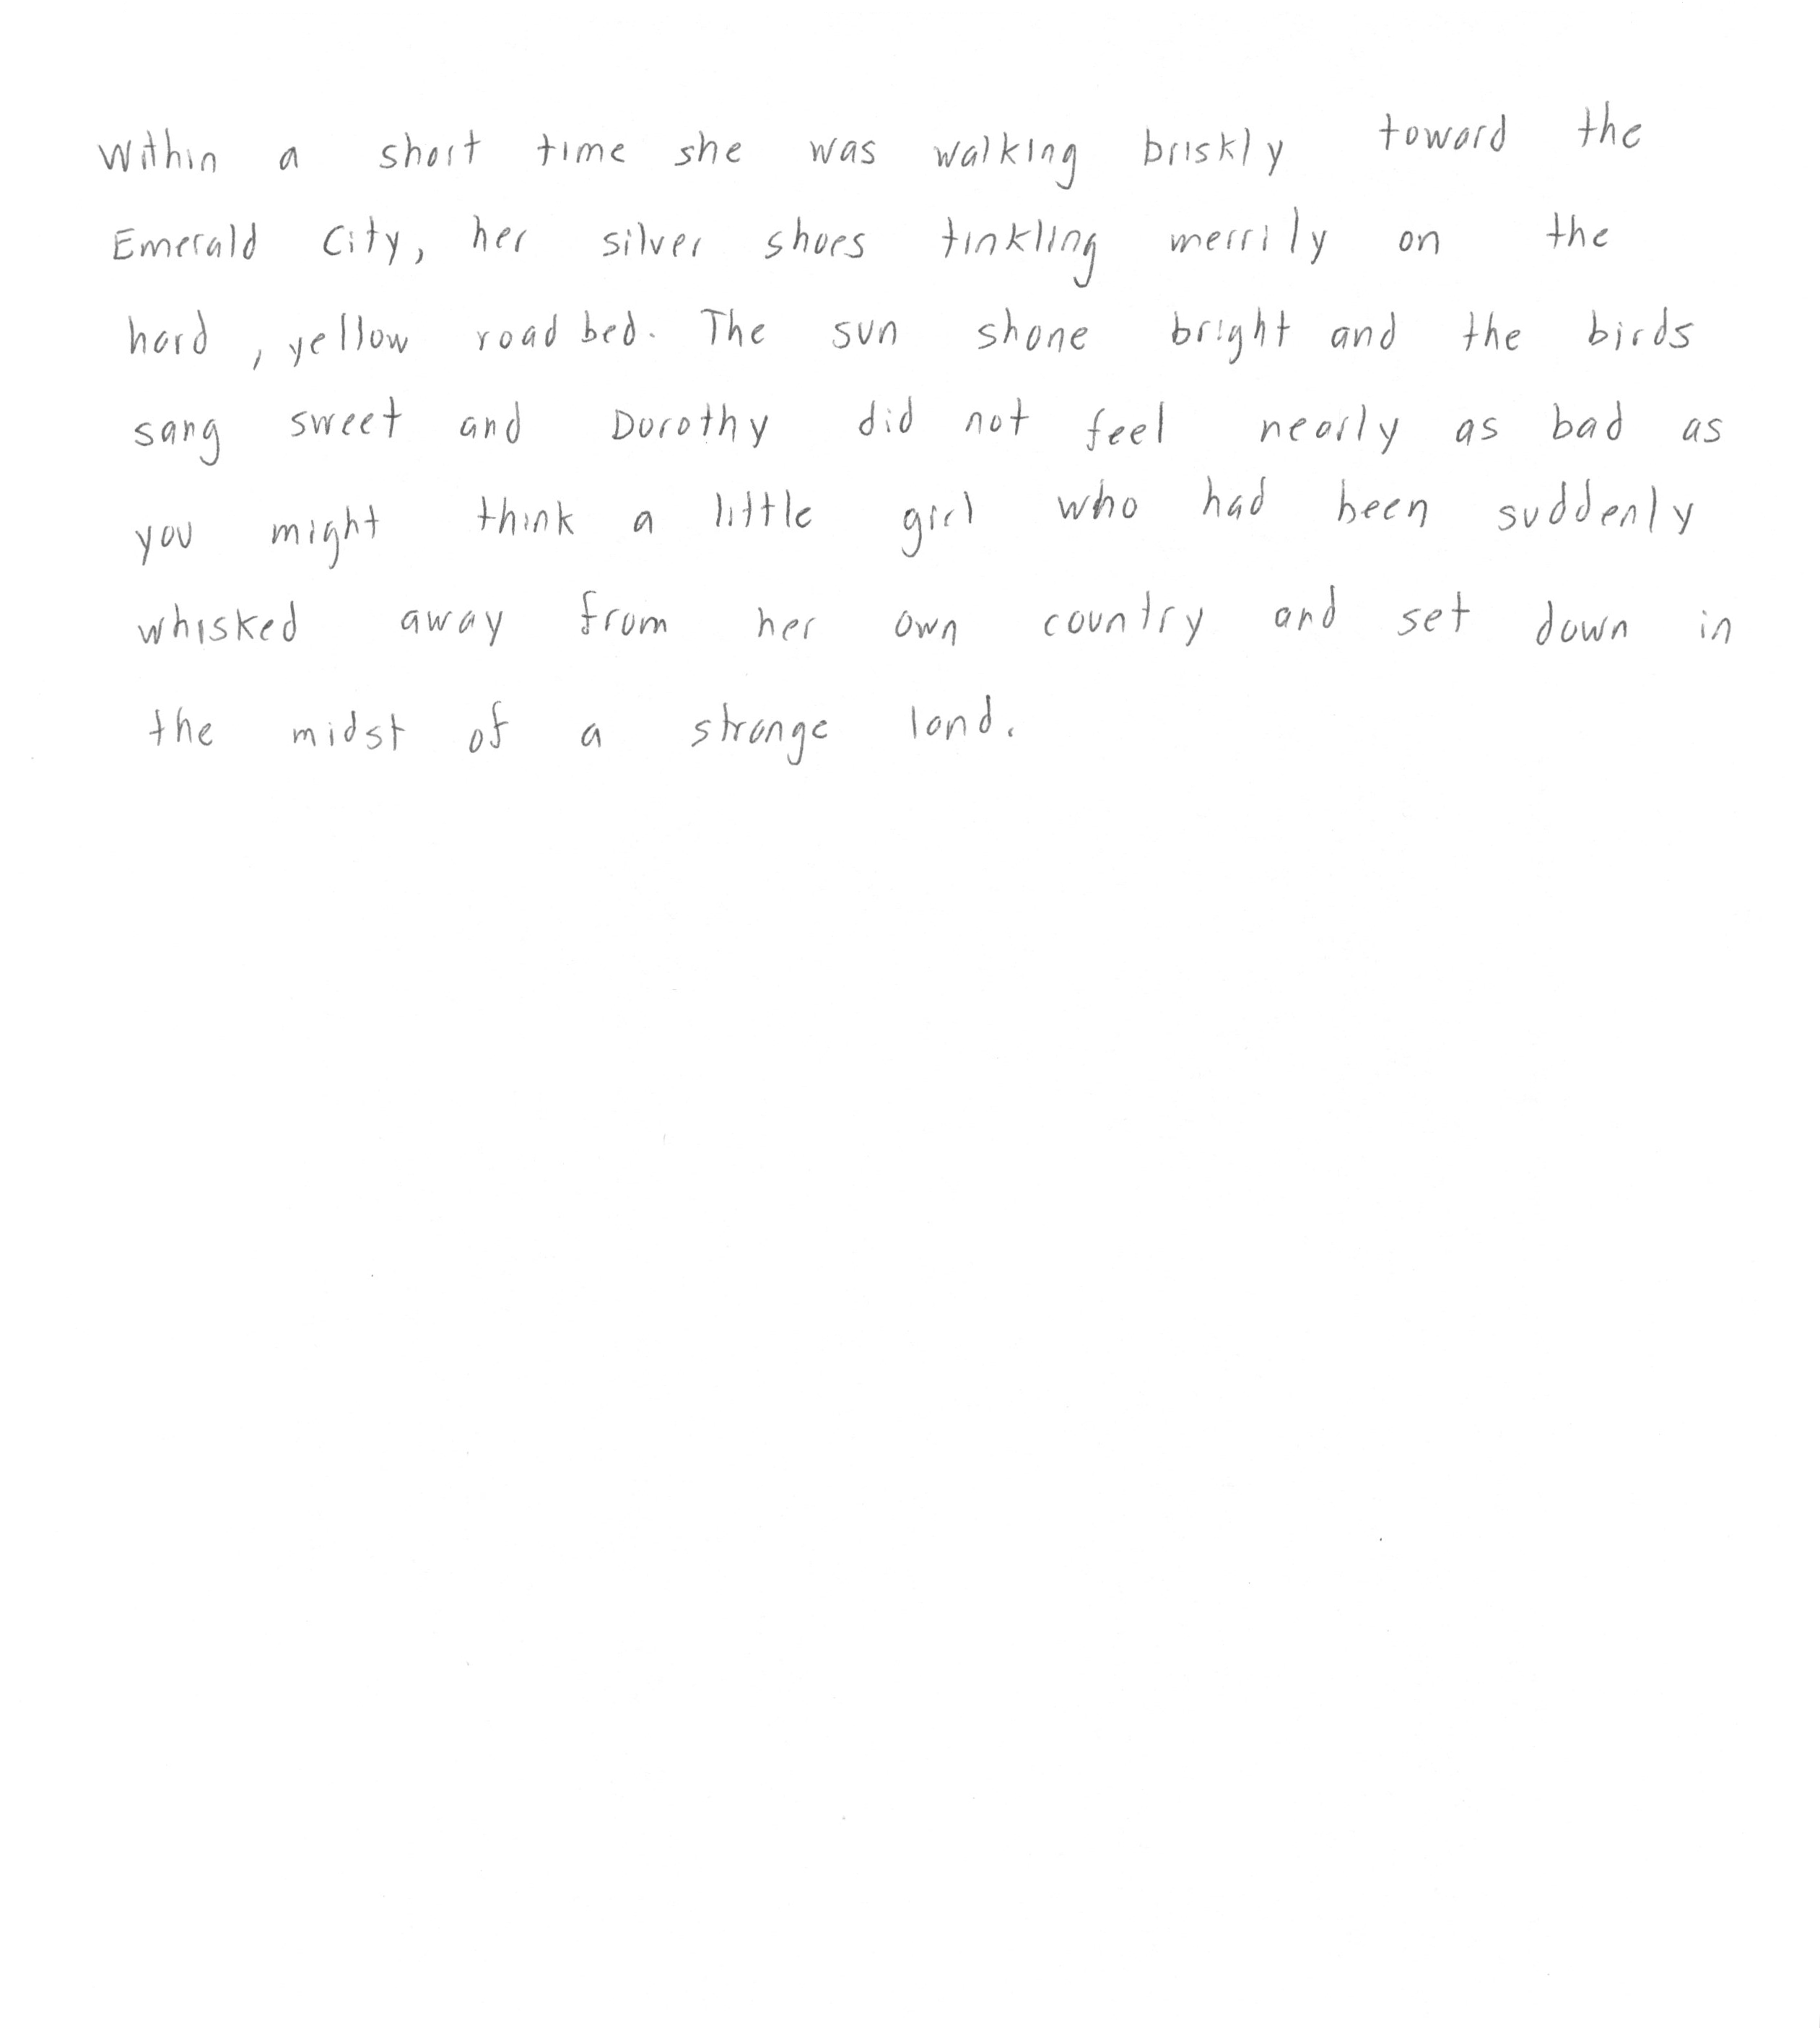 Within a short time she was walking briskly toward the
Emerald City, her silver shoes tinkling merrily on the
hard, yellow road bed. The sun shone bright and the birds
sang sweet and Dorothy did not feel nearly as bad as
you might think a little girl who had been suddenly
whisked away from her own country and set down in
the midst of a strange land.